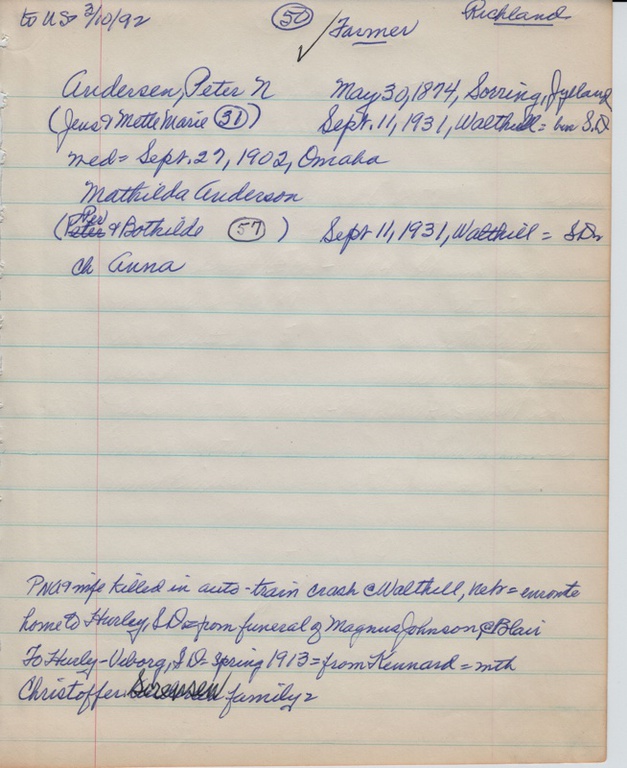 to US 3/10/92 (50) Farmer Richland
Andersen, Peter N May 30, 1874, Sorring, Jylland
(Jens & Mette Marie (31)) Sept. 11, 1931, Walthill = bur S.D
med = Sept. 27, 1902, Omaha
Mathilda Anderson
Per
(Peter & Bothilde (57)) Sept 11, 1931, Walthill = S.D.
ch Anna
PNA & wife killed in auto-train crash @ Walthill, Nebr = enroute
home to Hurley, S.D. = from funeral of Magnus Johnson, @ Blair
To Hurly-Viborg, S.D = Spring 1913 = from Kennard = with
Christoffer Sorensen family =